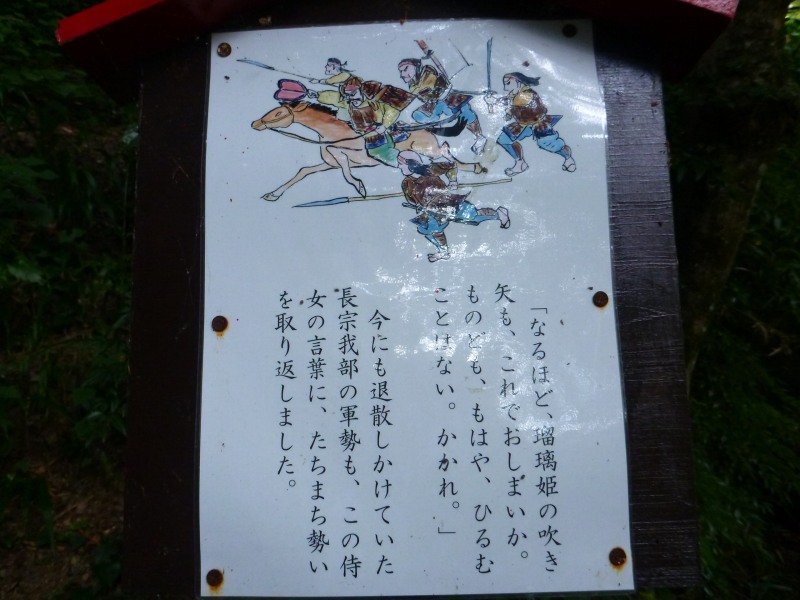 「なるほど、瑠璃姫の吹き
矢も、これでおしまいか。
ものども、もはや、ひるむ
ことはない。かかれ。」
今にも退散しかけていた
長宗我部の軍勢も、この侍
女の言葉に、たちまち勢い
を取り返しました。